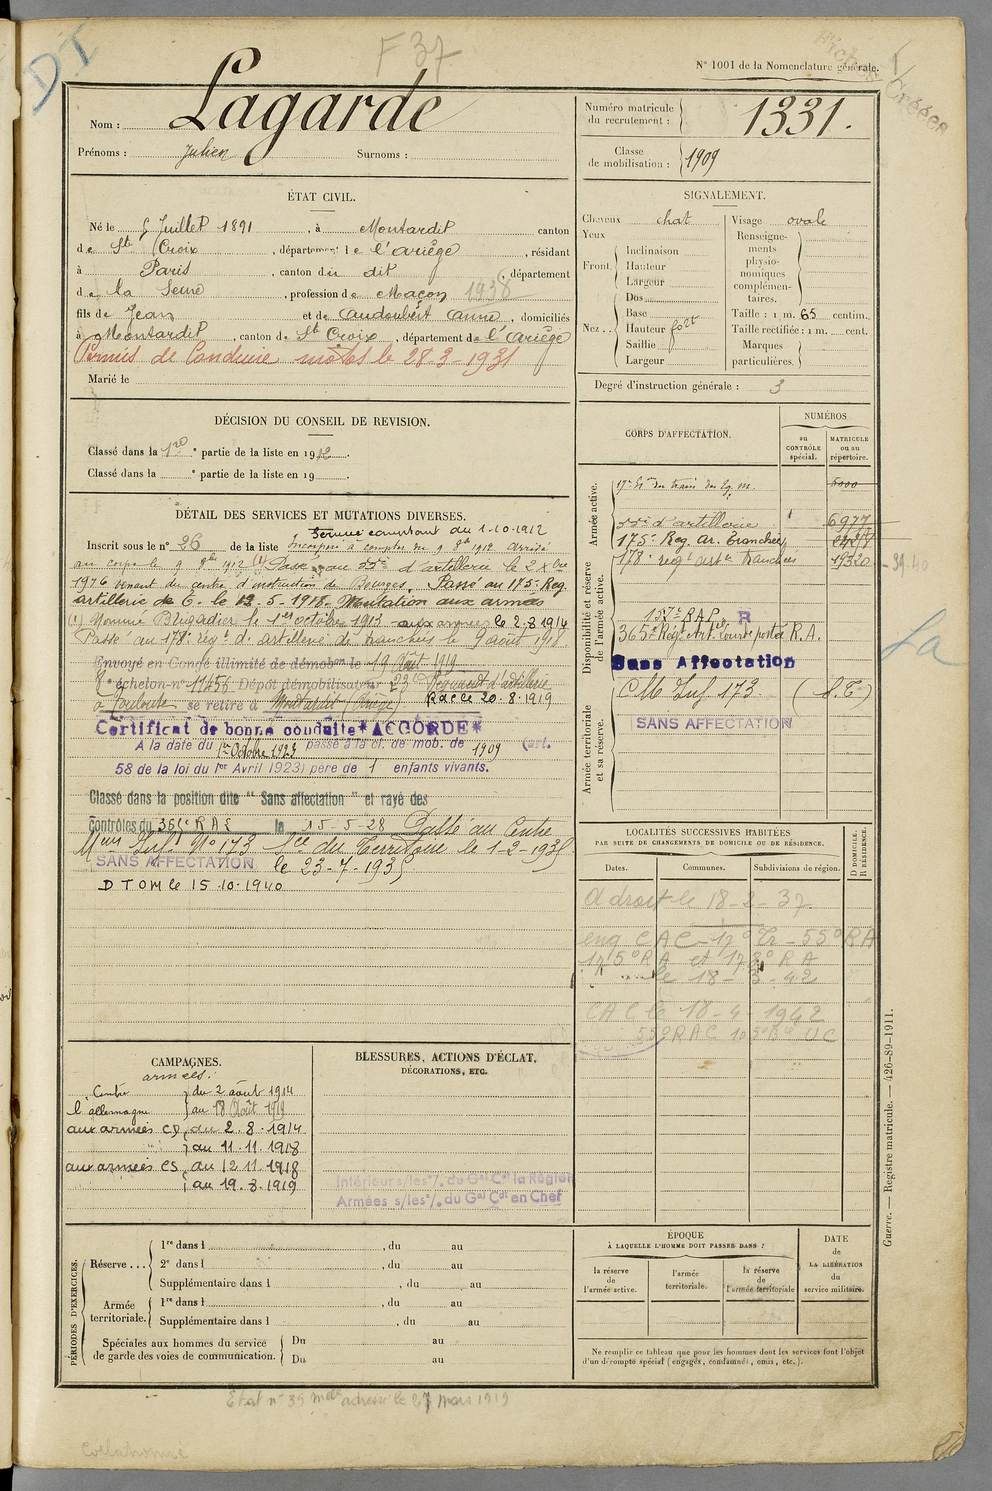 DT
F 37
N° 1001 de la Nomenclature générale.
Fiches Créées
Nom : Lagarde
Prénoms : Julien Surnoms :
Numéro matricule du recrutement : 1331.
Classe de mobilisation : 1909
ÉTAT CIVIL.
Né le 5 Juillet 1891, à Montardit canton
de St Croix, département de l'Ariège, résidant
à Paris, canton du dit, département
de la Seine, profession de Maçon 1938
fils de Jean et de Caudoubert Anne, domiciliés
à Montardit, canton de St Croix, département de l'Ariège
Permis de Conduire motos le 28-3-1931
Marié le
SIGNALEMENT.
Cheveux chat Visage ovale
Yeux
Front. Inclinaison
Hauteur
Largeur
Nez.. Dos
Base
Hauteur fort
Saillie
Largeur
Renseignements physionomiques complémentaires.
Taille : 1 m. 65 centim.
Taille rectifiée : 1 m. cent.
Marques particulières.
Degré d'instruction générale : 3
DÉCISION DU CONSEIL DE REVISION.
Classé dans la 1re partie de la liste en 1912.
Classé dans la ° partie de la liste en 19
DÉTAIL DES SERVICES ET MUTATIONS DIVERSES.
Service comptant du 1-10-1912
Inscrit sous le n° 26 de la liste Incorporé à compter du 9 8bre 1912 Arrivé
au corps le 9 8bre 1912 (1) Passé au d'artillerie le 2 Xbre
1916 venant du centre d'instruction de Bourges. Passé au 175e Reg.
artillerie de T. le 13-5-1918. Mutation aux armées
(1) Nommé Brigadier le 1er octobre 1913 aux armées le 2.8.1914
Passé au 178e rég. d'artillerie de tranchées le 9 août 1918
Envoyé en Congé illimité de démobon le 19 Août 1919
échelon n° 11456 Dépôt démobilisateur 23e Régiment d'artillerie
à Toulouse se retire à Montardit (Ariège) R.a.c. le 20.8.1919
Certificat de bonne conduite *ACCORDÉ*
A la date du 1er Octobre 1923 passe à la cl. de mob. de 1909 (art.
58 de la loi du 1er Avril 1923) père de 1 enfants vivants.
Classé dans la position dite "Sans affectation" et rayé des
contrôles du 365e RAE le 15-5-28 Passé au Centre
Mnn Inf. N° 173 du Territoire le 1-2-1935
SANS AFFECTATION le 23-7-1935
DTOM le 15.10.1940
CORPS D'AFFECTATION.
NUMÉROS
au CONTRÔLE spécial.
MATRICULE ou au répertoire.
Armée active.
17e Eon du train des Eq. M. 6000
d'artillerie 6977
175e Reg. Ar. Tranchées
178e regt artie tranchées 19320
39.40
Disponibilité et réserve de l'armée active.
157e RAP R
365e Reg. Art. Lourde portée R.A.
Sans Affectation
CM Inf 173 (S.T.)
Armée territoriale et sa réserve.
SANS AFFECTATION
La
LOCALITÉS SUCCESSIVES HABITÉES
PAR SUITE DE CHANGEMENTS DE DOMICILE OU DE RÉSIDENCE.
Dates. Communes. Subdivisions de région.
D DOMICILE. R RÉSIDENCE.
A droit le 18-2-37
enq CAC-17e Tr-55e RA
175e RA et 178e RA
le 18-3-42
CAC le 18-4-1942
55e RAC 105e Bie UC
CAMPAGNES.
armées :
Contre l'allemagne du 2 août 1914
au 18 Août 1919
aux armées CD du 2.8.1914
au 11.11.1918
aux armées CS du 12.11.1918
au 19.8.1919
BLESSURES, ACTIONS D'ÉCLAT,
DÉCORATIONS, ETC.
Intérieur s/les °/. du Gal Ct la Région
Armées s/les °/. du Gal Ct en Chef
PÉRIODES D'EXERCICES.
Réserve... 1re dans l , du au
2e dans l , du au
Supplémentaire dans l , du au
Armée territoriale. 1re dans l , du au
Supplémentaire dans l , du au
Spéciales aux hommes du service de garde des voies de communication. Du au
Du au
ÉPOQUE
À LAQUELLE L'HOMME DOIT PASSER DANS :
la réserve de l'armée active.
l'armée territoriale.
la réserve de l'armée territoriale
DATE de LA LIBÉRATION du service militaire.
Ne remplir ce tableau que pour les hommes dont les services font l'objet
d'un décompte spécial (engagés, condamnés, omis, etc.).
Guerre. — Registre matricule. — 426-89-1911.
État n° 39 adressé le 27 mars 1919